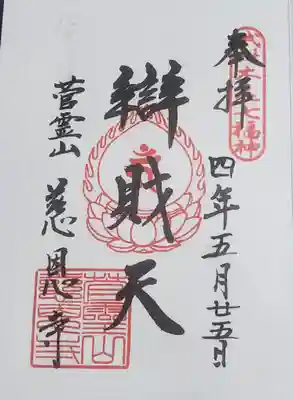 奉拝
四年五月廿五日
辯財天
菅霊山
慈恩寺